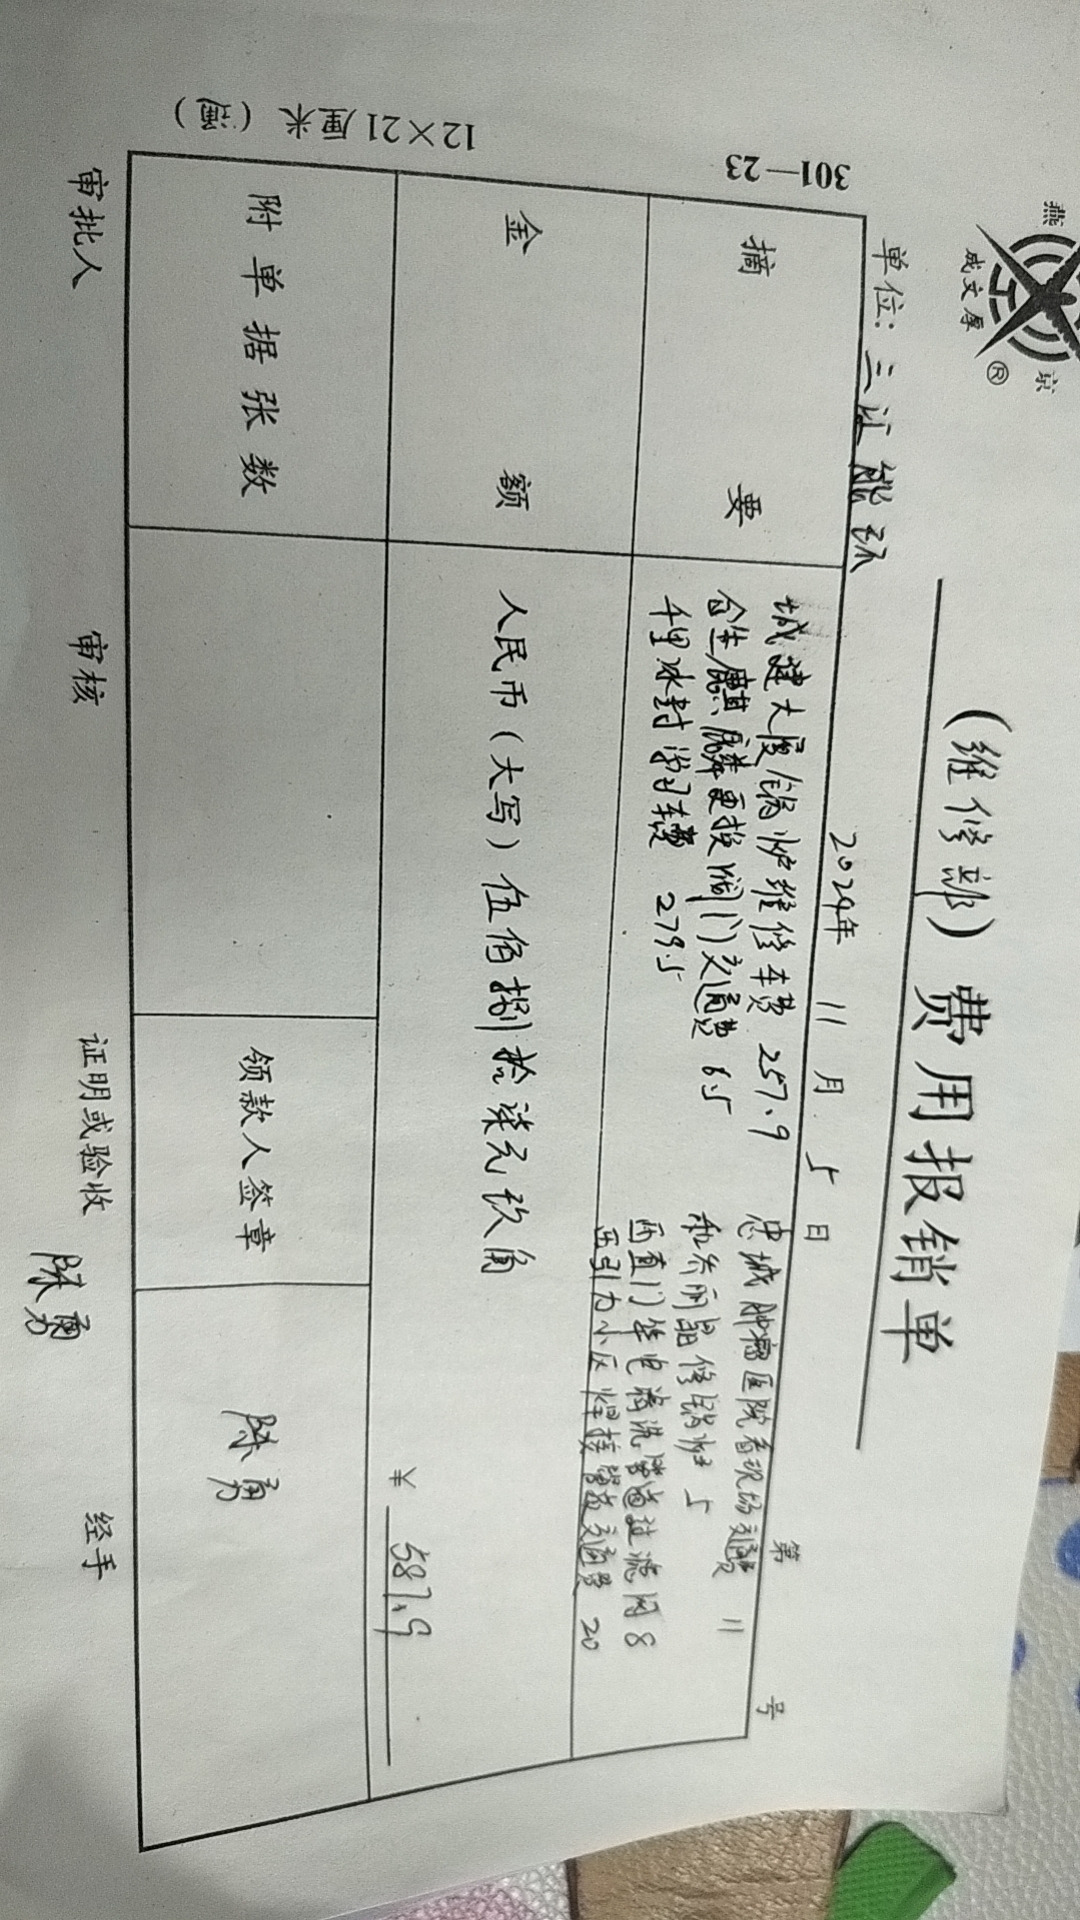 燕 京
成文厚
®
(维修部) 费用报销单
单位: 三江能源 2024年 11月 5日 第 号
301—23
摘要
城建大厦锅炉维修车费 257.9
金隅麒麟更换阀门交通费 6.5
千里冰封 车费 279.5
忠城肿瘤医院看现场交通费 11
和乔丽晶修锅炉 5
西直门华电清洗管道过滤网 8
西引力小区焊接管交通费 20
金额
人民币(大写) 伍佰捌拾柒元玖角
¥ 587.9
附单据张数
领款人签章
陈勇
审批人 审核 证明或验收 陈勇 经手
12×21厘米 (通)